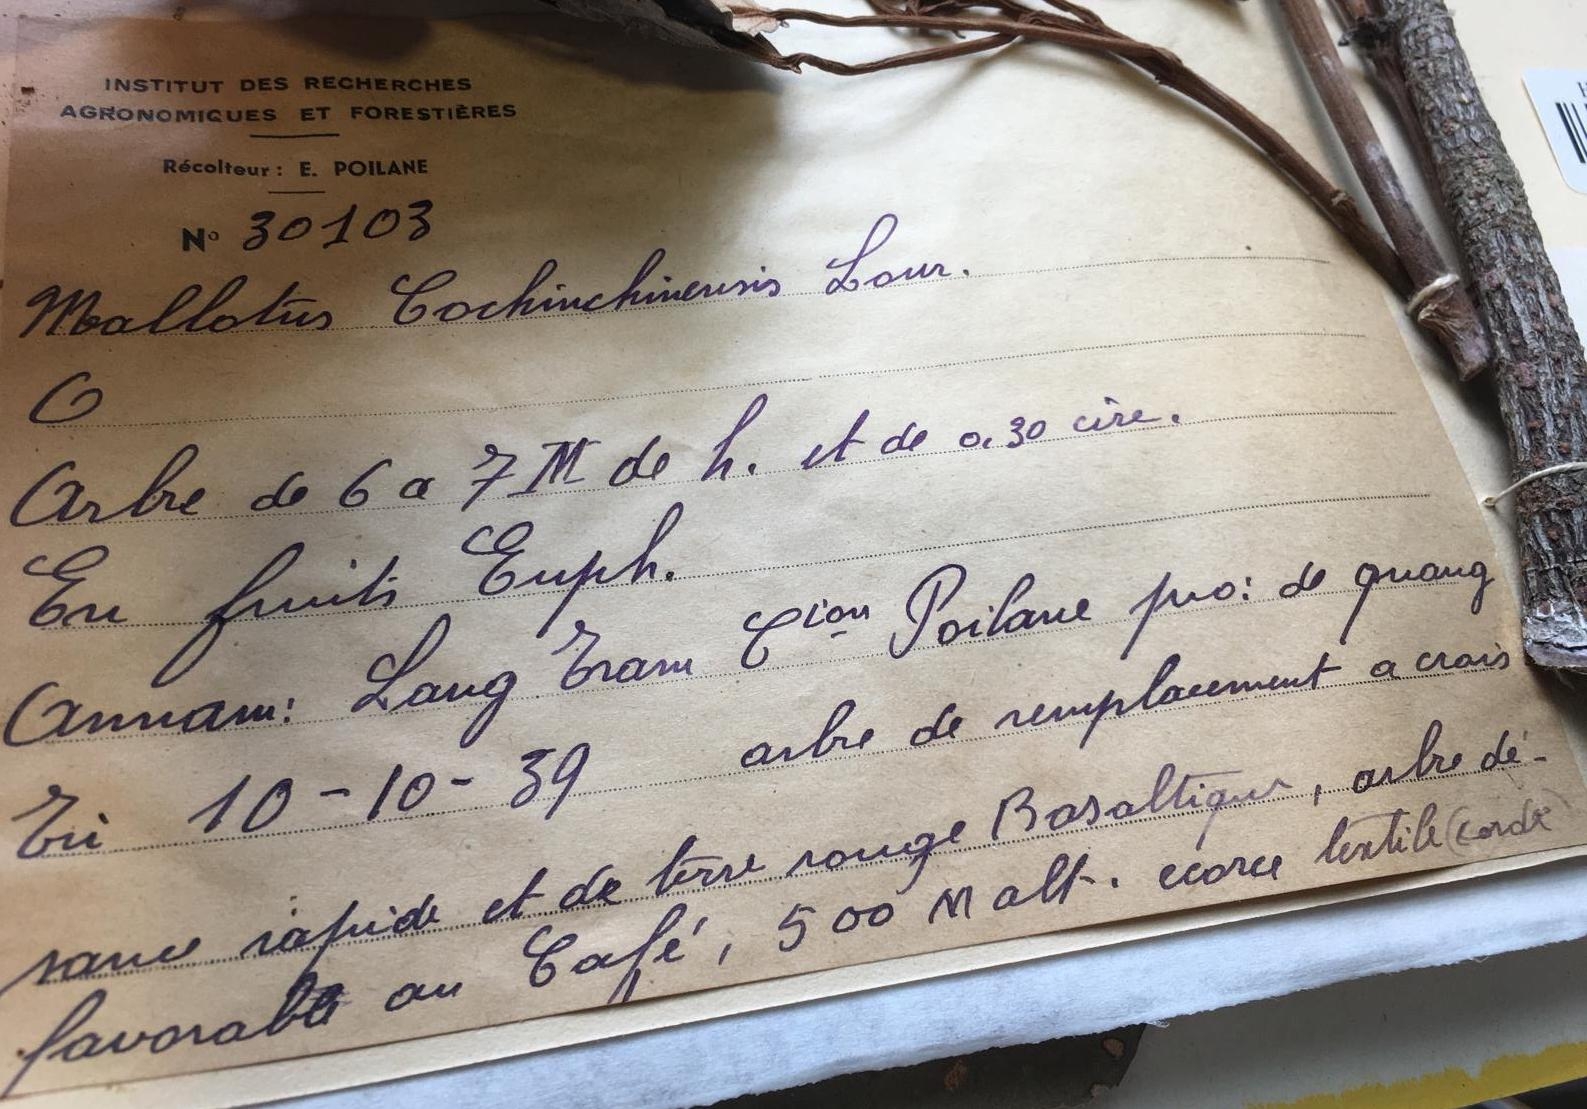 INSTITUT DES RECHERCHES
AGRONOMIQUES ET FORESTIÈRES
Récolteur : E. POILANE
N° 30103
Mallotus Cochinchinensis Lour.
O
Arbre de 6 a 7 M de h. et de 0,30 circ.
En fruits Euph.
Annam: Lang Tram Cion Poilane pro: de quang
Tri 10-10-39 arbre de remplacement a crois
sance rapide et de terre rouge Basaltique, arbre dé-
favorable au Café, 500 M alt. écorce textile (corde)